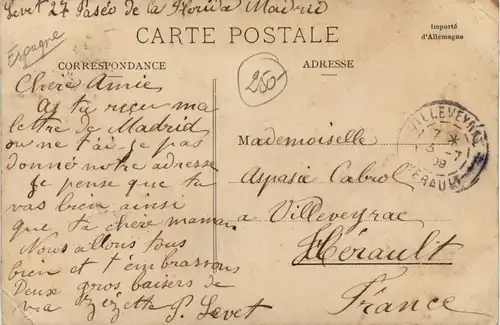 Levet 27 Paséo de la Florida Madrid
Espagne
CARTE POSTALE
Importé
d'Allemagne
CORRESPONDANCE
ADRESSE
280
Chère Amie
As tu reçu ma
lettre de Madrid
ou ne t'ai je pas
donné notre adresse
Je pense que tu
vas bien ainsi
que ta chère maman.
Nous allons tous
bien et t'embrassons
Deux gros baisers de
ma Zizette P. Levet
Mademoiselle
Aspasie Cabrol
a Villeveyrac
Hérault
France
VILLEVEYRAC
HERAULT